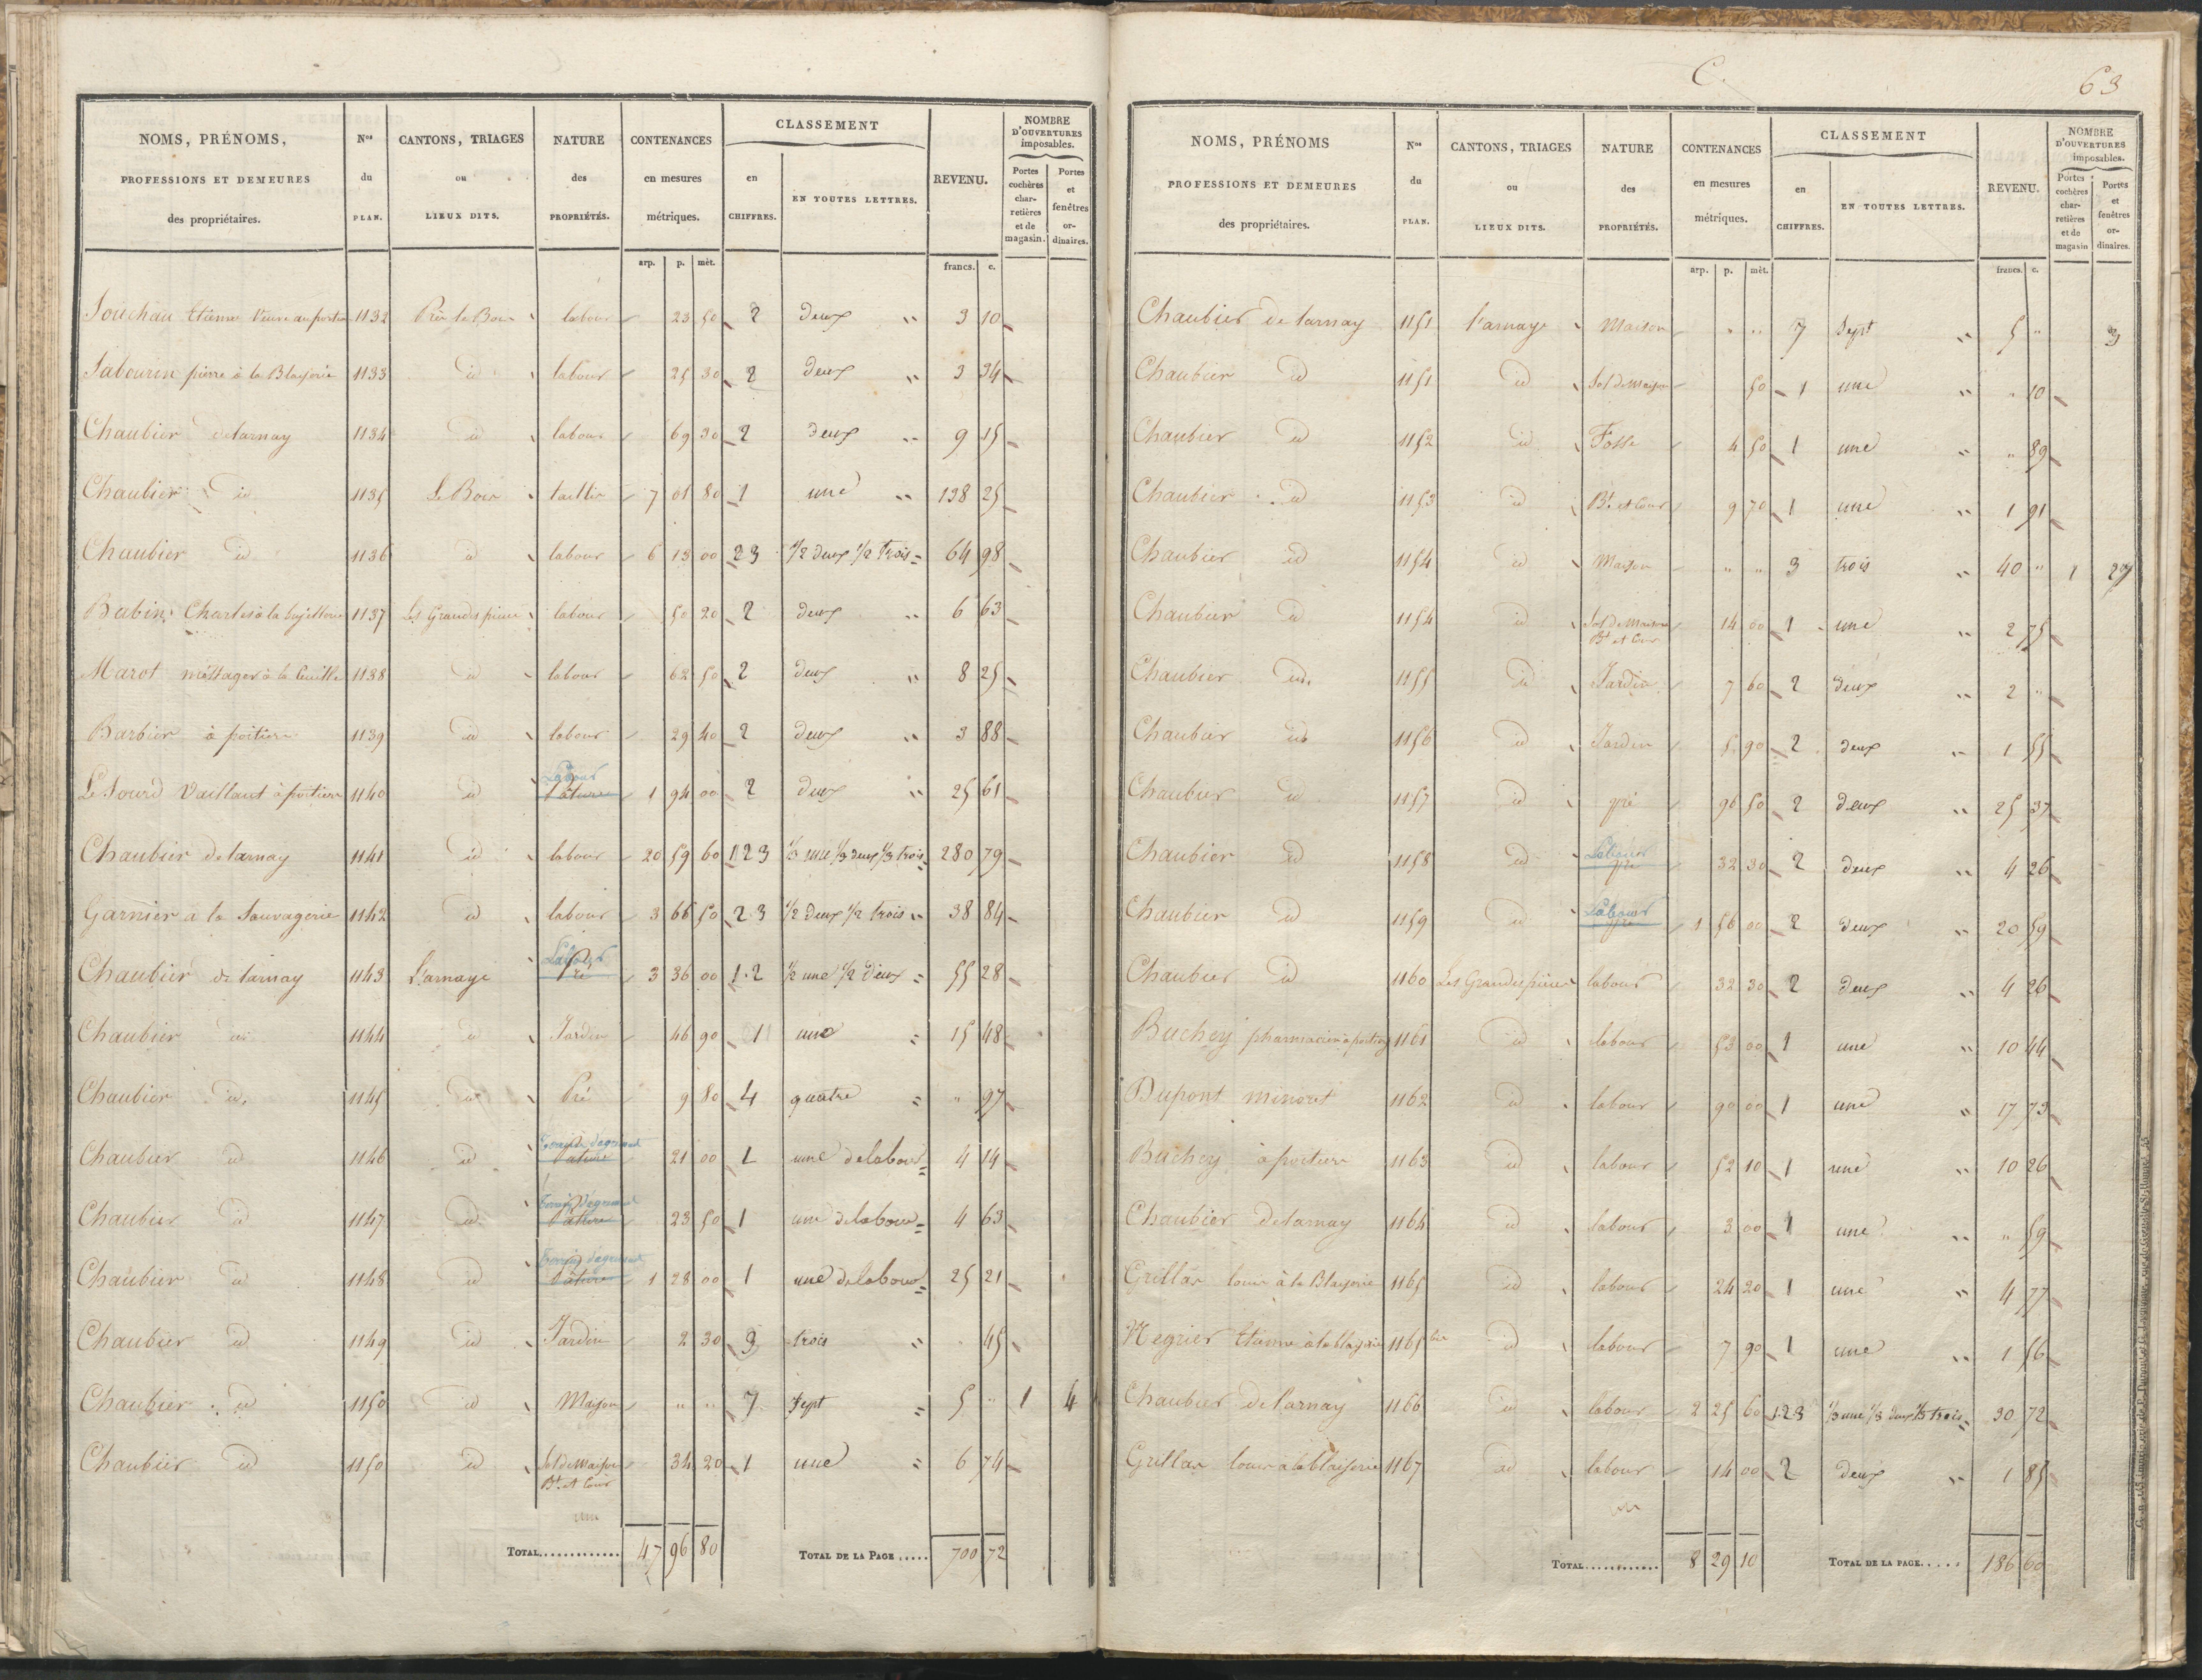 C.
63
NOMS, PRÉNOMS, PROFESSIONS ET DEMEURES des propriétaires. | Nos du PLAN. | CANTONS, TRIAGES ou LIEUX DITS. | NATURE des PROPRIÉTÉS. | CONTENANCES en mesures métriques. | CLASSEMENT en CHIFFRES. | EN TOUTES LETTRES. | REVENU. | NOMBRE D'OUVERTURES imposables. Portes cochères charretières et de magasin. | Portes et fenêtres ordinaires.
arp. p. mèt. francs. c.
Souchau Etienne 1132 labour 23 50 2 deux " 3 10
Sabourin pierre à la Blaiserie 1133 id labour 25 30 2 deux " 3 34
Chaubier delarnay 1134 id labour 69 30 2 deux " 9 15
Chaubier id 1135 Le Bois taillis 7 01 80 1 une " 138 25
Chaubier id 1136 id labour 6 13 00 23 1/2 deux 1/2 trois 64 98
Babin Charles à la 1137 Les Grandes pièces labour 50 20 2 deux " 6 63
Marot à la 1138 id labour 62 50 2 deux " 8 25
Barbier à poitiers 1139 id labour 29 40 2 deux " 3 88
Le Sourd Vaillant à poitiers 1140 id Labour Pâture 1 94 00 2 deux " 25 61
Chaubier delarnay 1141 id labour 20 59 60 123 1/3 une 1/3 deux 1/3 trois 280 79
Garnier à la Sauvagerie 1142 id labour 3 66 50 2.3 1/2 deux 1/2 trois 38 84
Chaubier de larnay 1143 L'arnaye Labour Pré 3 36 00 1.2 1/2 une 1/2 deux 55 28
Chaubier id 1144 id Jardin 46 90 1 une 15 48
Chaubier id. 1145 id Pré 9 80 4 quatre " 97
Chaubier id 1146 id Terrain d'agrément Pature 21 00 1 une de labour 4 14
Chaubier id 1147 id Terrain d'agrément Pature 23 50 1 une de labour 4 63
Chaubier id 1148 id Terrain d'agrément Pature 1 28 00 1 une de labour 25 21
Chaubier id 1149 id Jardin 2 30 3 trois " 45
Chaubier id 1150 id Maison " " 7 sept 5 " 1 4
Chaubier id 1150 id Sol de Maison Bt. et Cour 34 20 1 une 6 74
TOTAL............ 47 96 80 TOTAL DE LA PAGE..... 700 72
NOMS, PRÉNOMS PROFESSIONS ET DEMEURES des propriétaires. | Nos du PLAN. | CANTONS, TRIAGES ou LIEUX DITS. | NATURE des PROPRIÉTÉS. | CONTENANCES en mesures métriques. | CLASSEMENT en CHIFFRES. | EN TOUTES LETTRES. | REVENU. | NOMBRE D'OUVERTURES imposables. Portes cochères charretières et de magasin | Portes et fenêtres ordinaires.
arp. p. mèt. francs. c.
Chaubier de larnay 1151 l'arnaye Maison " " 7 sept " 5 " 3
Chaubier id 1151 id Sol de Maison 50 1 une " " 10
Chaubier id 1152 id Fosse 4 50 1 une " " 89
Chaubier id 1153 id Bt. et Cour 9 70 1 une " 1 91
Chaubier id 1154 id Maison " " 3 trois " 40 " 1 27
Chaubier id 1154 id Sol de Maison Bt et Cour 14 00 1 une " 2 75
Chaubier id. 1155 id Jardin 7 60 2 deux " 2 "
Chaubier id 1156 id Jardin 5 90 2 deux " 1 55
Chaubier id 1157 id pré 96 50 2 deux " 25 37
Chaubier id 1158 id Labour pré 32 30 2 deux " 4 26
Chaubier id 1159 id Labour pré 1 56 00 2 deux " 20 59
Chaubier id 1160 Les Grandes pièces labour 32 30 2 deux " 4 26
Buchey pharmacien à poitiers 1161 id labour 53 00 1 une " 10 44
Dupont minoret 1162 id labour 90 00 1 une " 17 73
Buchey à poitiers 1163 id labour 52 10 1 une " 10 26
Chaubier Delarnay 1164 id labour 3 00 1 une " " 59
Grillas louis à la Blaiserie 1165 id labour 24 20 1 une " 4 77
Negrier Etienne à la blaiserie 1165 bis id labour 7 90 1 une " 1 56
Chaubier de larnay 1166 id labour 2 25 60 1.2.3 1/3 une 1/3 deux 1/3 trois 30 72
Grillas louis à la blaiserie 1167 id labour 14 00 2 deux " 1 85
TOTAL............ 8 29 10 TOTAL DE LA PAGE..... 186 60